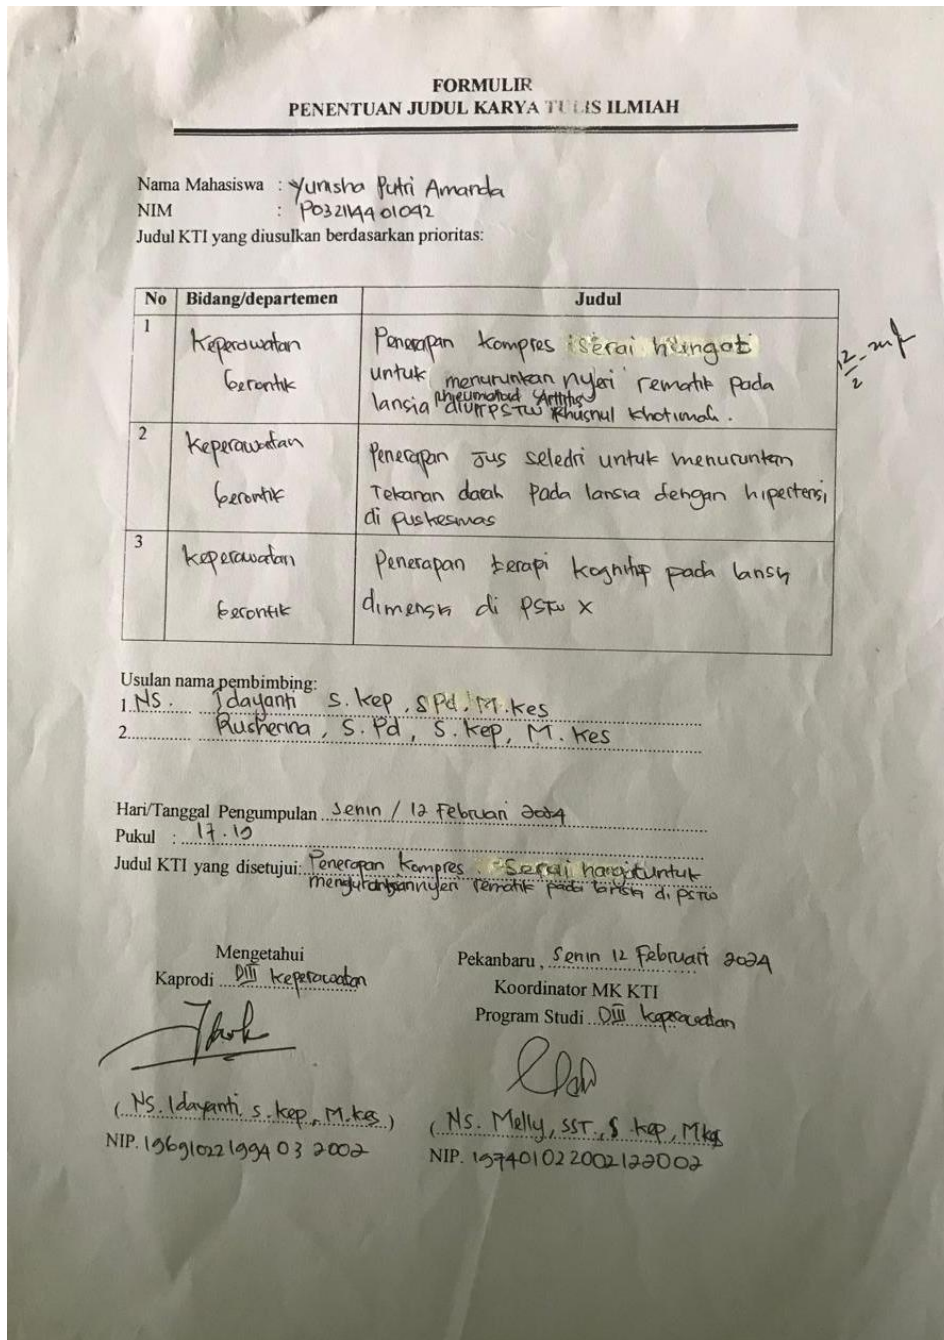 FORMULIR
PENENTUAN JUDUL KARYA TULIS ILMIAH
Nama Mahasiswa : Yunisha Putri Amanda
NIM : P032114401042
Judul KTI yang diusulkan berdasarkan prioritas:
No Bidang/departemen Judul
1 Keperawatan Gerontik Penerapan kompres serai hangat
untuk menurunkan nyeri rematik pada
Rheumatoid Arthritis
lansia di UPT PSTW Khusnul Khotimah.
12/2
2 Keperawatan Gerontik Penerapan Jus seledri untuk menurunkan
Tekanan darah pada lansia dengan hipertensi
di puskesmas
3 keperawatan Gerontik Penerapan terapi kognitip pada lansia
dimensia di PSTW X
Usulan nama pembimbing:
1. NS. Idayanti S.kep, SPd, M.kes
2. Rusherina, S.Pd, S.kep, M.kes
Hari/Tanggal Pengumpulan Senin / 12 Februari 2024
Pukul : 17.10
Judul KTI yang disetujui: Penerapan kompres Serai hangat untuk
nyeri rematik pada lansia di PSTW
Mengetahui
Kaprodi DIII keperawatan
Pekanbaru, Senin 12 Februari 2024
Koordinator MK KTI
Program Studi DIII keperawatan
(NS. Idayanti, S.kep, M.kes)
NIP. 196910221994 03 2002
(Ns. Melly, SST., S.kep, Mkes
NIP. 197401022002122002